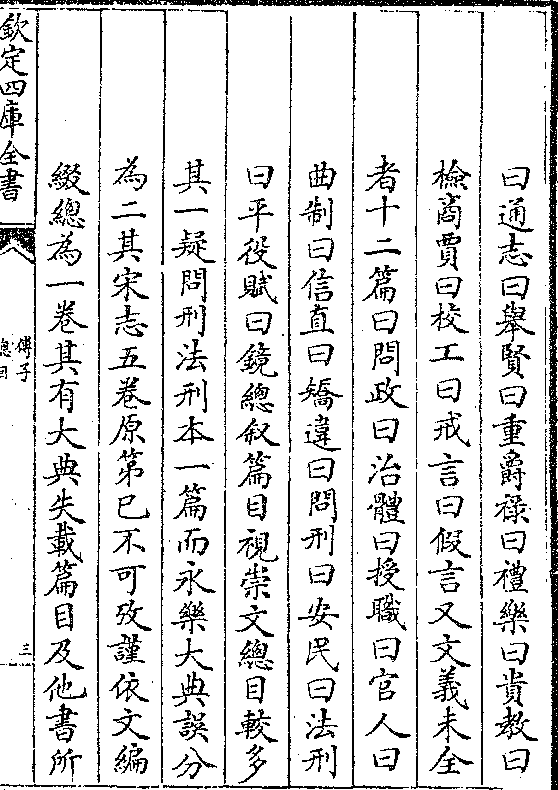 曰通志曰舉賢曰重爵祿曰禮樂曰貴教曰
檢商賈曰校工曰戒言曰假言又文義未全
者十二篇曰問政曰治體曰授職曰官人曰
曲制曰信直曰矯違曰問刑曰安民曰法刑
曰平役賦曰鏡總叙篇目視崇文總目較多
其一疑問刑法刑本一篇而永樂大典誤分
為二其宋志五卷原第已不可攷謹依文編
綴總為一卷其有大典失載篇目及他書所
欽定四庫全書
傅子
總目
三